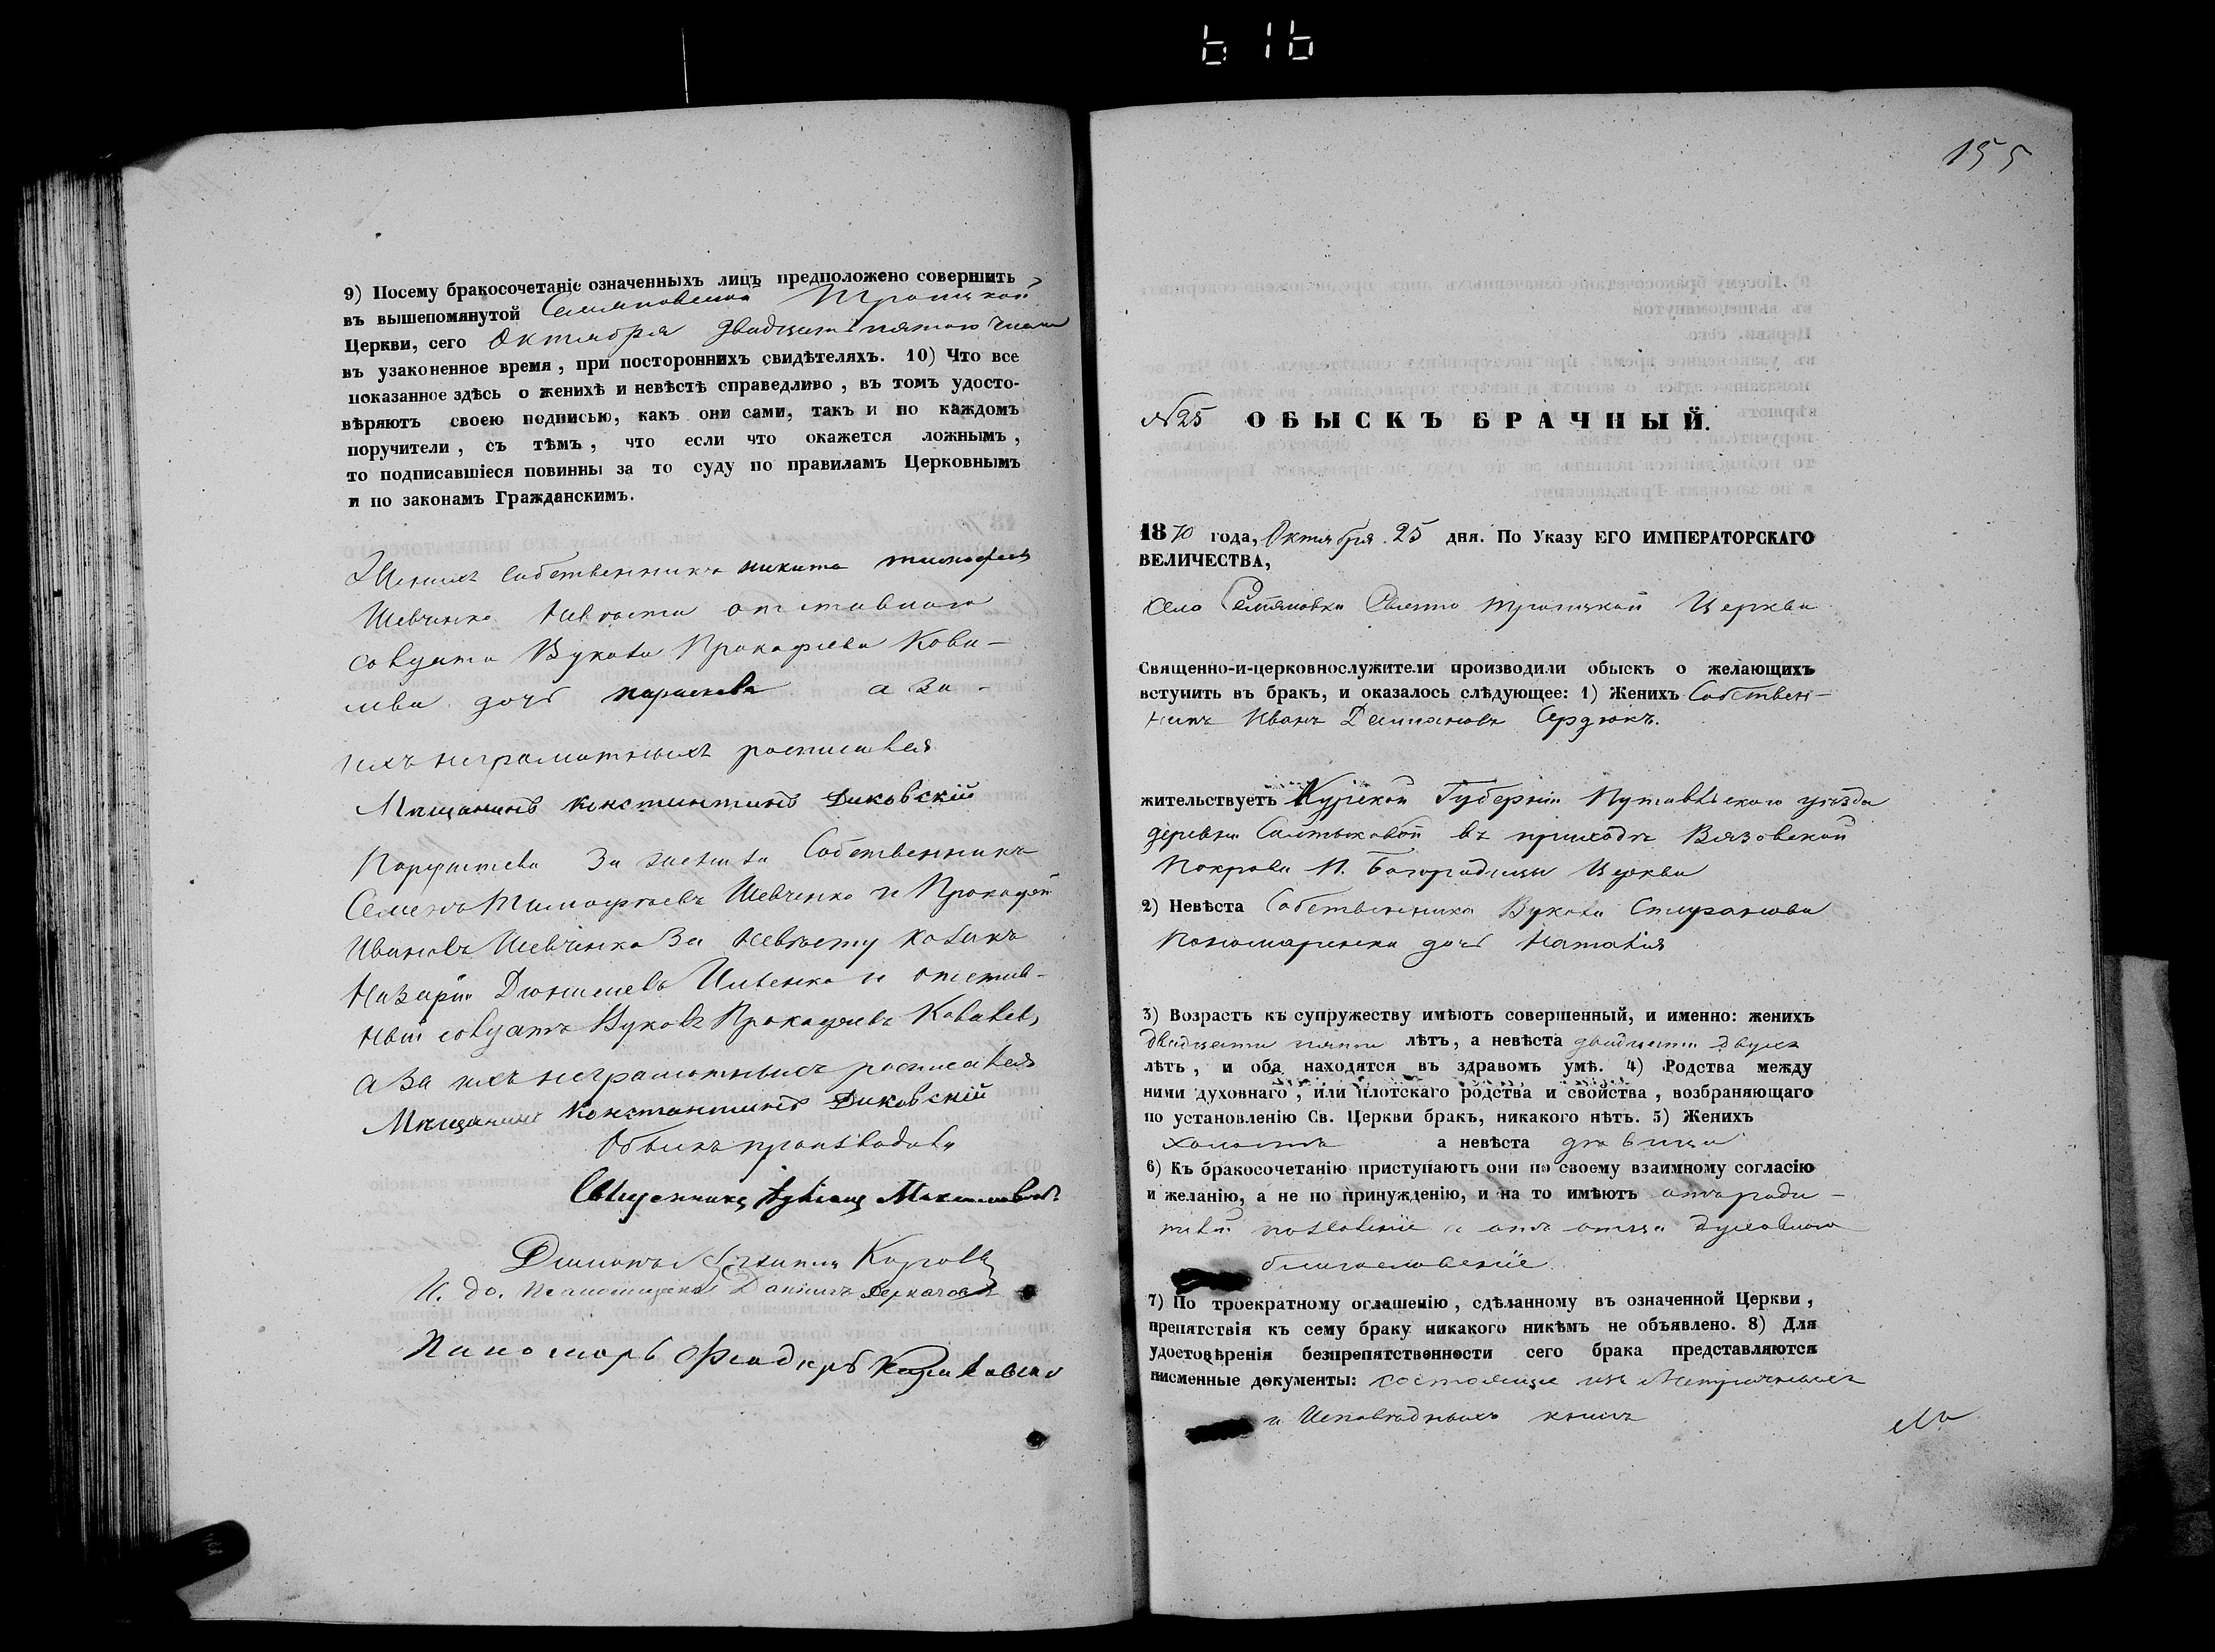 616
9) Посему бракосочетаніе означенныхъ лицъ предположено совершить
въ вышепомянутой Семяновской Троицкой
Церкви, сего Октября двадцать пятаго числа
въ узаконенное время, при постороннихъ свидѣтеляхъ. 10) Что все
показанное здѣсь о женихѣ и невѣстѣ справедливо, въ томъ удосто-
вѣряютъ своею подписью, какъ они сами, такъ и по каждомъ
поручители, съ тѣмъ, что если что окажется ложнымъ,
то подписавшіеся повинны за то суду по правиламъ Церковнымъ
и по законамъ Гражданскимъ.
Женихъ Собственникъ никита тимофеев
Шевченко Невѣста отставнаго
солдата Вукола Прокофіева Кова-
лева дочь параскева а за
ихъ неграмотныхъ росписался
Мѣщанинъ константинъ Диковскій
За жениха Собственникъ
Семенъ Тимофѣевъ Шевченко и Прокофій
Ивановъ Шевченко За невѣсту козакъ
Назарій Ильенко и отстав-
ный солдатъ Вуколъ Прокофіевъ Ковалевъ
а за ихъ неграмотныхъ росписался
Мѣщанинъ Константинъ Диковскій
Обыскъ производили
Священникъ
Дьяконъ
И. до. Псаломщика Даніилъ Деркачовъ
Пономарь
155
№25 ОБЫСКЪ БРАЧНЫЙ.
1870 года, Октября 25 дня. По Указу ЕГО ИМПЕРАТОРСКАГО
ВЕЛИЧЕСТВА,
Село Семяновки Свято Троицкой Церкви
Священно-и-церковнослужители производили обыскъ о желающихъ
вступить въ бракъ, и оказалось слѣдующее: 1) Женихъ Собствен-
никъ Иванъ Демьяновъ Сердюкъ.
жительствуетъ Курской Губерніи Путивльскаго уѣзда
деревни Салтыковой въ приходѣ Вязовской
Покрова П. Богородицы Церкви
2) Невѣста Собственника Вукола Стефанова
Пономаренка дочь Наталія
3) Возрастъ къ супружеству имѣютъ совершенный, и именно: женихъ
двадцати пяти лѣтъ, а невѣста двадцати двухъ
лѣтъ, и оба находятся въ здравомъ умѣ. 4) Родства между
ними духовнаго, или плотскаго родства и свойства, возбраняющаго
по установленію Св. Церкви бракъ, никакого нѣтъ. 5) Женихъ
холостъ а невѣста дѣвица
6) Къ бракосочетанію приступаютъ они по своему взаимному согласію
и желанію, а не по принужденію, и на то имѣютъ отъ роди-
телей позволеніе и отъ отца духовнаго
благословеніе
7) По троекратному оглашенію, сдѣланному въ означенной Церкви,
препятствія къ сему браку никакого никѣмъ не объявлено. 8) Для
удостовѣренія безпрепятственности сего брака представляются
письменные документы: состоящіе изъ Метрическихъ
и Исповѣдныхъ книгъ